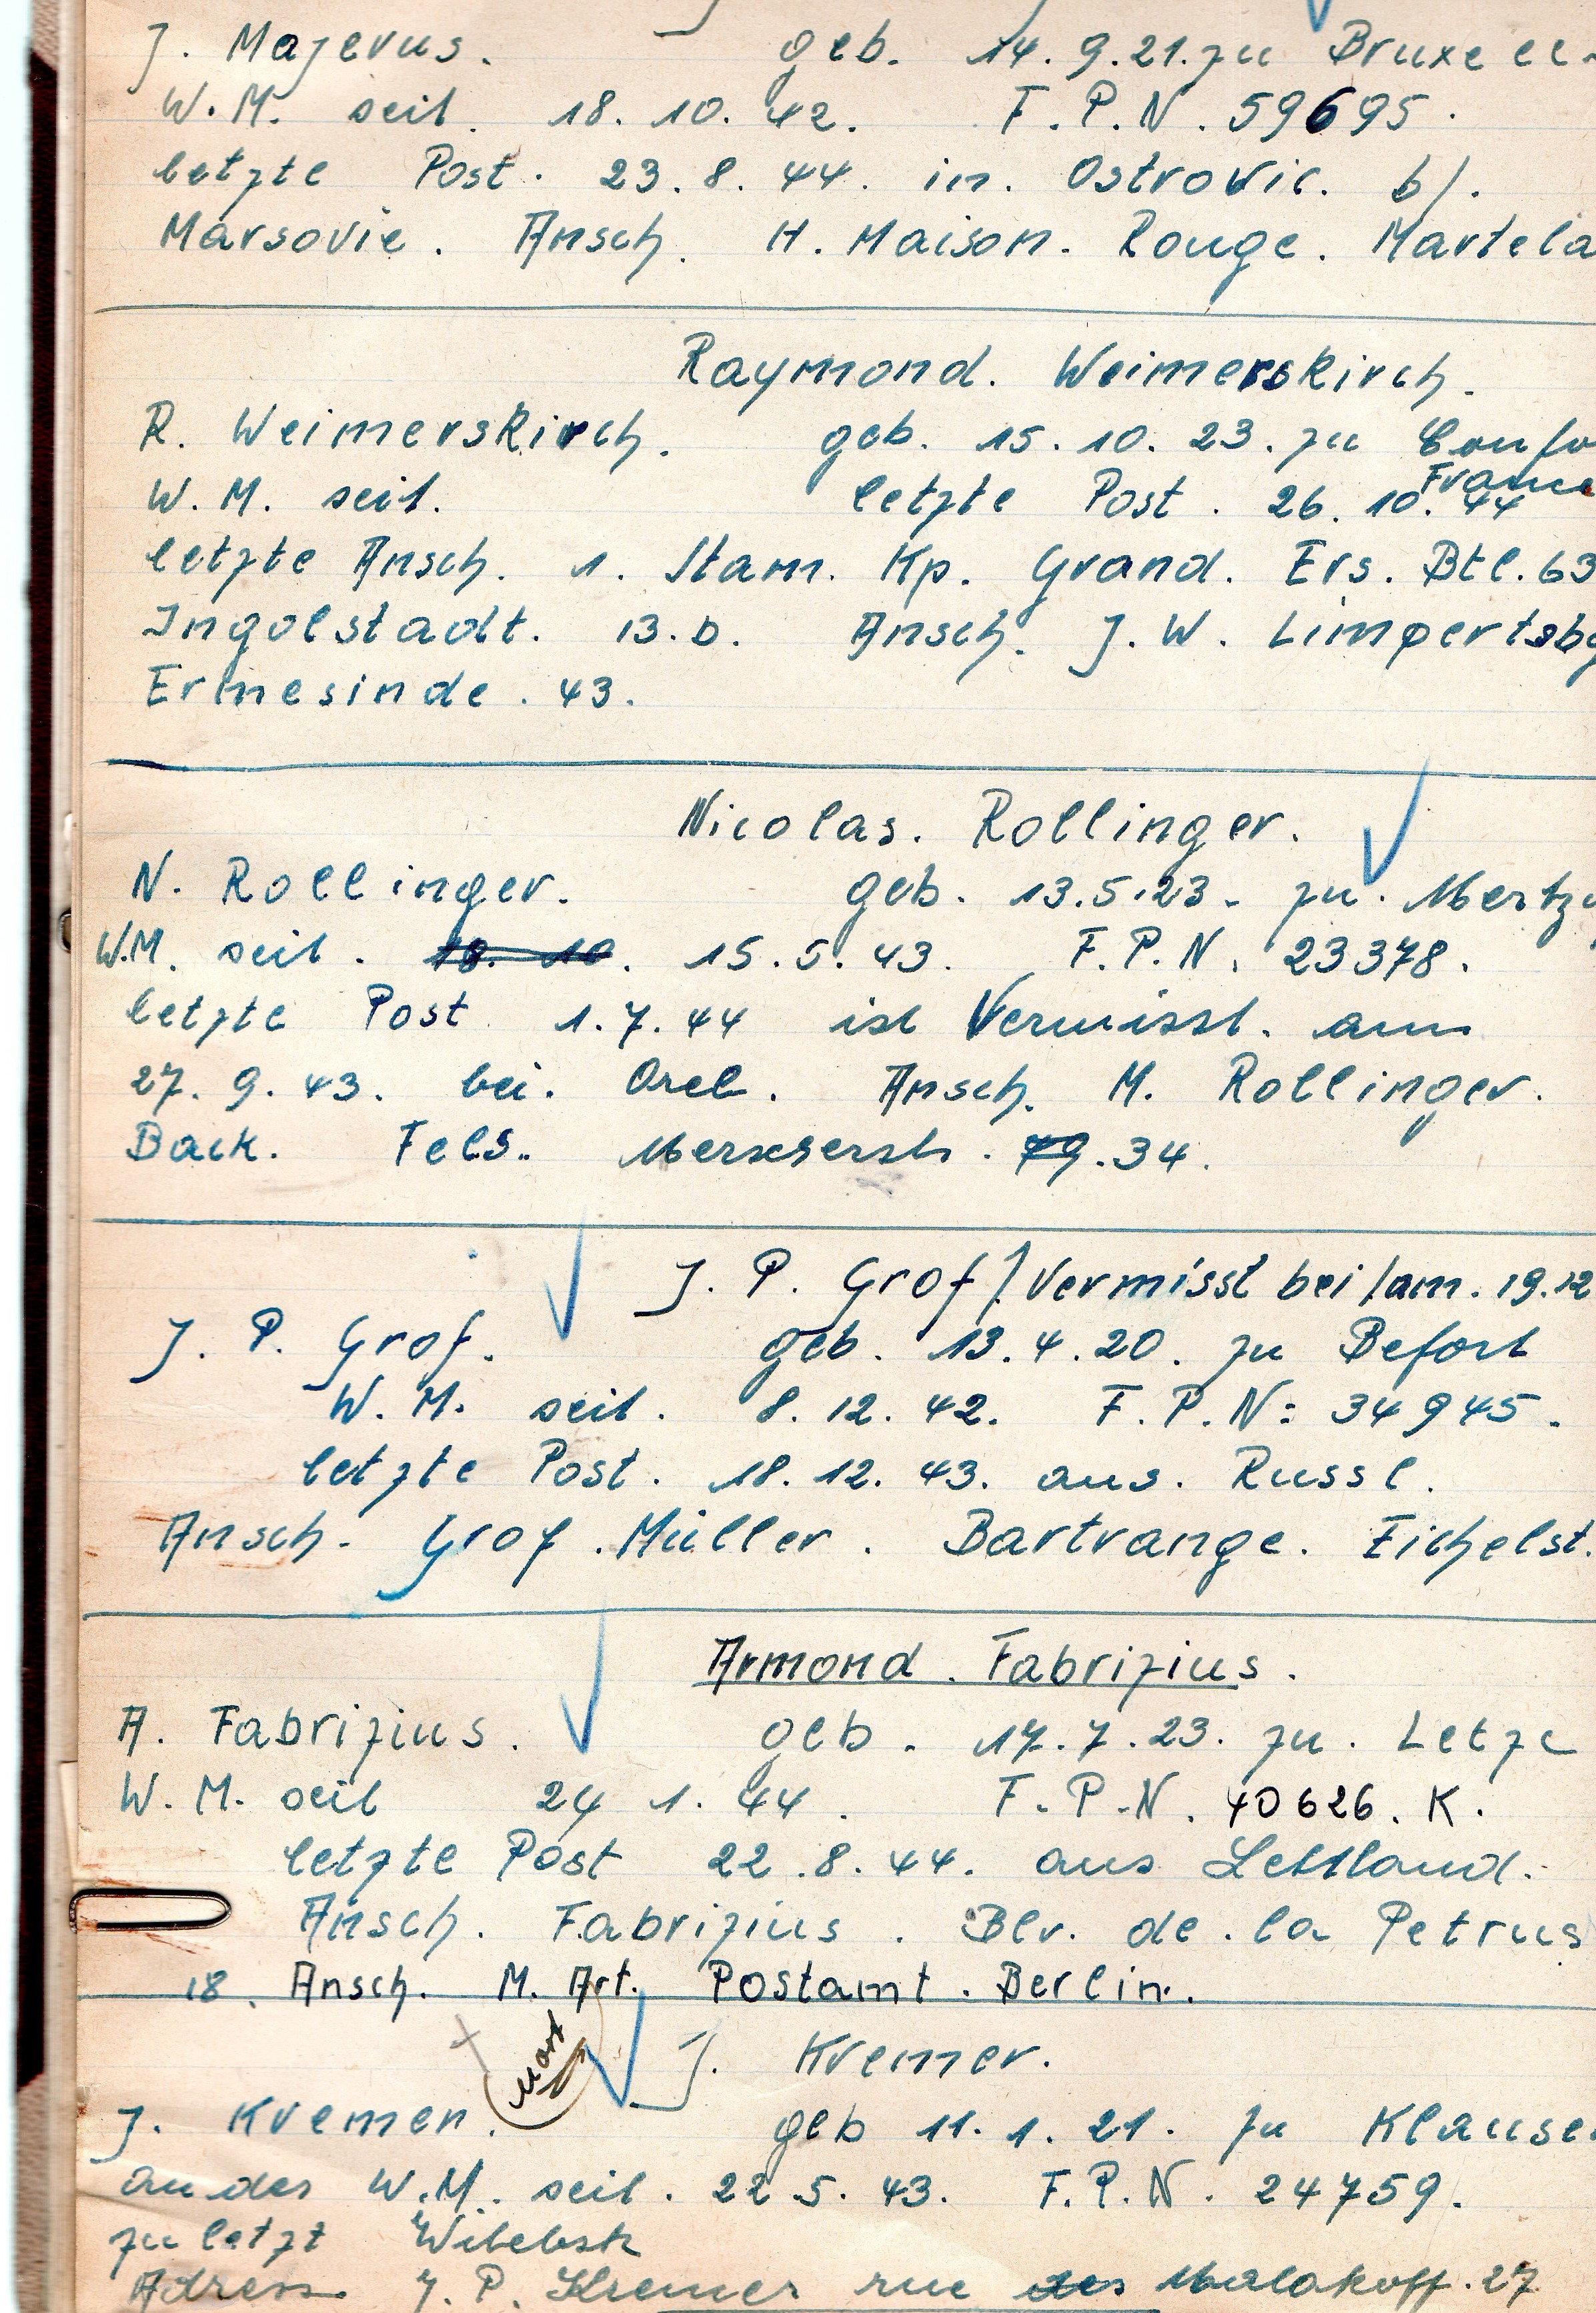 J. Majerus. geb. 14.9.21. zu Bruxell
W.M. seit. 18.10.42. F.P.N. 59695.
letzte Post. 23.8.44. in. Ostrovic. b/.
Marsovie. Ansch. H. Maison. Rouge. Martela
Raymond. Weimerskirch.
R. Weimerskirch. geb. 15.10.23. zu
France
W.M. seit. letzte Post. 26.10.44
letzte Ansch. 1. Stam. Kp. Grand. Ers. Btl. 63
Ingolstadt. 13.b. Ansch. J.W. Limpertsbg
Ermesinde. 43.
Nicolas. Rollinger.
N. Rollinger. geb. 13.5.23. zu. Mertzi
W.M. seit. 18. 10. 15.5.43. F.P.N. 23378.
letzte Post 1.7.44 ist Vermisst. am
27.9.43. bei. Orel. Ansch. M. Rollinger.
Back. Fels. 79.34.
J. P. Grof / Vermisst bei / am. 19.12
J. P. Grof. geb. 13.4.20. zu Befort
W.M. seit. 8.12.42. F.P.N: 34945.
letzte Post. 18.12.43. aus. Russl.
Ansch. Grof. Müller. Bartrange. Eichelst.
Armond. Fabrizius.
A. Fabrizius. geb. 17.7.23. zu. Letze
W.M. seit 24 1.44. F.P.N. 40626. K.
letzte Post 22.8.44. aus Lettland.
Ansch. Fabrizius. Blv. de. la Petrus
18. Ansch. M. Art. Postamt. Berlin.
J. Kremer.
J. Kremer. geb 11.1.21. zu Klause
an der W.M. seit. 22.5.43. F.P.N. 24759.
zu letzt Witebsk
Adress J. P. Kremer rue des Malakoff. 27